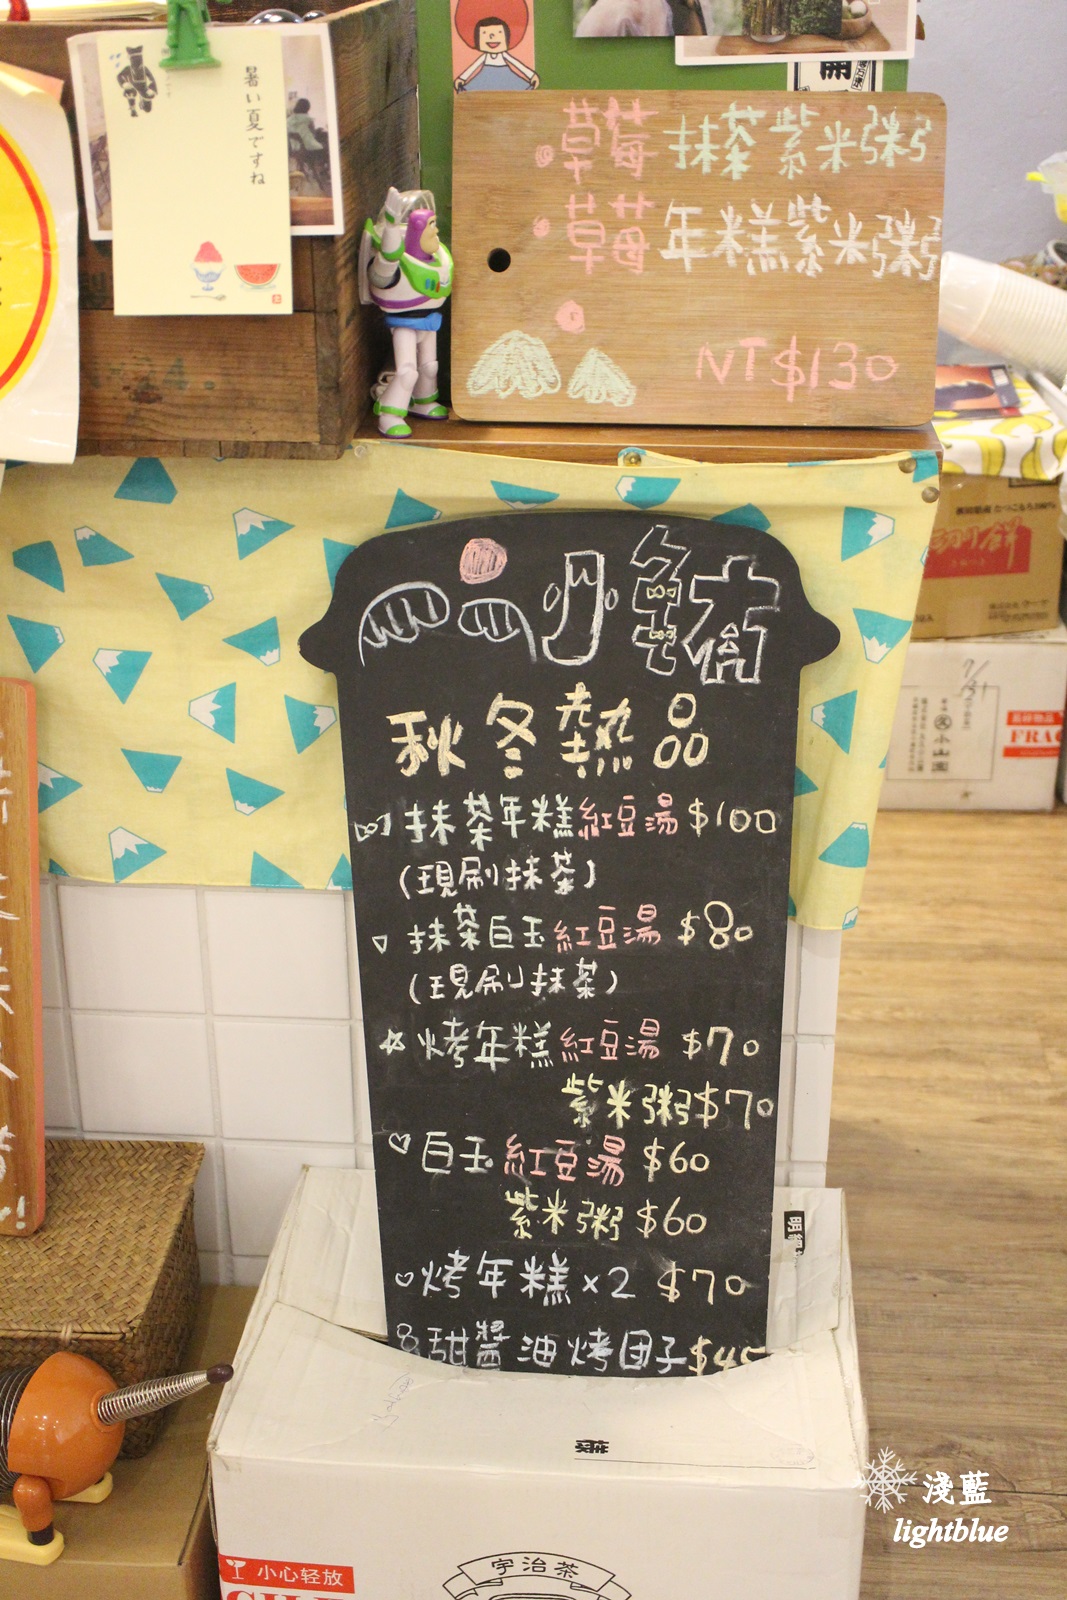 暑い夏ですね
草莓抹茶紫米粥
草莓年糕紫米粥
NT$130
秋冬熱品
抹茶年糕紅豆湯 $100
(現刷抹茶)
抹茶白玉紅豆湯 $80
(現刷抹茶)
烤年糕紅豆湯 $70
紫米粥 $70
白玉紅豆湯 $60
紫米粥 $60
烤年糕 x2 $70
甜醬油烤团子 $45
7/31
小山園
FRA
小心轻放
宇治茶
淺藍
lightblue